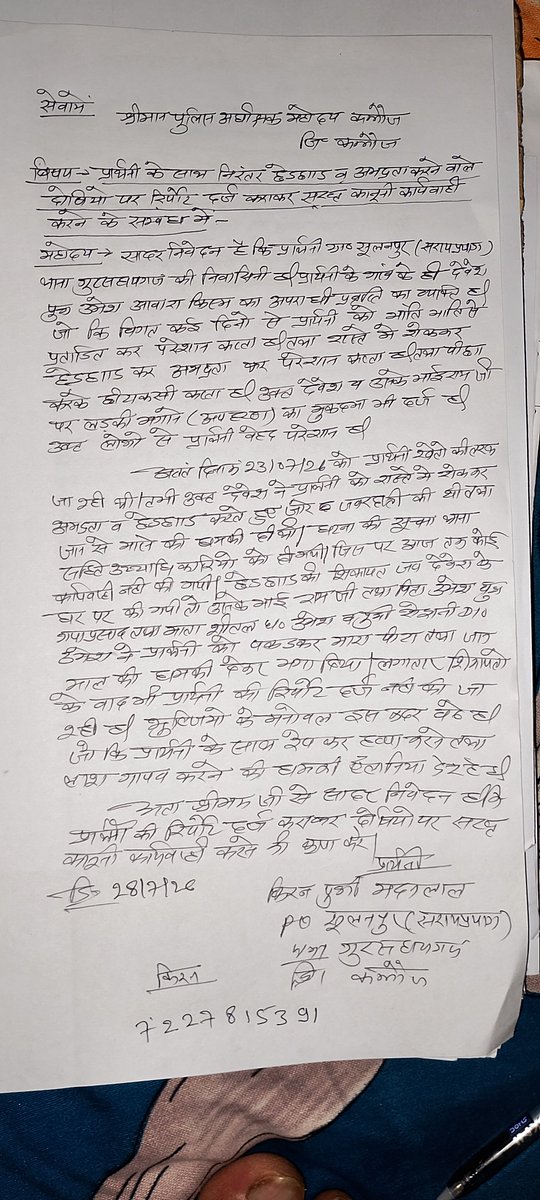 सेवामें
श्रीमान पुलिस अधीक्षक महोदय कन्नौज
जि- कन्नौज
विषय→ प्रार्थिनी के साथ निरंतर छेडछाड व अभद्रता करने वाले
दोषियो पर रिर्पोट दर्ज कराकर सख्त कानूनी कार्यवाही
करने के सम्बन्ध में -
महोदय→ सादर निवेदन है कि प्रार्थिनी ग्रा० सूलनपुर (सरायप्रयाग)
थाना गुरसहायगंज की निवासिनी है। प्रार्थिनी के गांव के ही देवेश
पुत्र उमेश आवारा किस्म का अपराधी प्रवृत्ति का व्यक्ति है।
जो कि विगत कई दिनो से प्रार्थिनी को भांति भांति से
प्रताडित कर परेशान करता है। तथा रास्ते मे रोककर
छेडछाड कर अभद्रता कर परेशान करता है। तथा पीछा
करके छीटाकसी करता है। उक्त देवेश व उसके भाई राम जी
पर लड़की भगाने (अपहरण) का मुकदमा भी दर्ज है।
उक्त लोगो से प्रार्थिनी बेहद परेशान है।
दिनांक 23/07/26 को प्रार्थिनी खेतो की तरफ
जा रही थी। तभी उक्त देवेश ने प्रार्थिनी को रास्ते मे रोककर
अभद्रता व छेडछाड करते हुए जोर जबरदस्ती की थी तथा
जान से मारने की धमकी दी थी। घटना की सूचना थाना
सहित उच्चाधिकारियो को दी गयी। जिस पर आज तक कोई
कार्यवाही नही की गयी। छेडछाड की शिकायत जब देवेश के
घर पर की गयी तो उसके भाई राम जी तथा पिता उमेश पुत्र
गयाप्रसाद तथा माता शीतल w/o उमेश व D/o
उमेश ने प्रार्थिनी को पकडकर मारा पीटा तथा जान
माल की धमकी देकर भगा दिया। लगातार शिकायतो
के बाद भी प्रार्थिनी की रिर्पोट दर्ज नही की जा
रही है। के मनोबल इस कदर बढे है।
जो कि प्रार्थिनी के साथ रेप कर हत्या करने तथा
लाश गायब करने की धमकी ऐलानिया दे रहे है।
अतः श्रीमान जी से सादर निवेदन है कि
प्रार्थिनी की रिर्पोट दर्ज कराकर दोषियो पर सख्त
कानूनी कार्यवाही करने की कृपा करें।
प्रार्थिनी
दि० 28/7/26
किरन पुत्री मदनलाल
P० सूलनपुर (सरायप्रयाग)
थाना गुरसहायगंज
जि० कन्नौज
किरन
7227815391